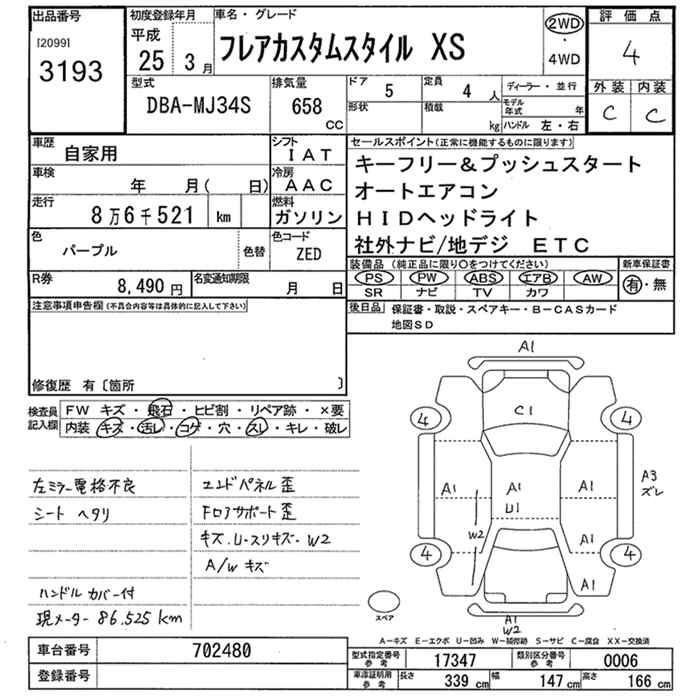 出品番号
[2099]
3193
初度登録年月
平成
25年 3月
車名・グレード
フレアカスタムスタイル XS
2WD
・
4WD
評価点
4
外装 内装
C C
型式
DBA-MJ34S
排気量
658
CC
ドア 5
定員 4 人
形状
積載 kg
ディーラー・並行
モデル年式 年
ハンドル 左・右
車歴 自家用
シフト IAT
車検 年 月( 日)
冷房 AAC
走行 8万6千521 km
燃料 ガソリン
色 パープル 色替
色コード ZED
R券 8,490円
名変通知期限 月 日
セールスポイント(正常に機能するものに限ります)
キーフリー&プッシュスタート
オートエアコン
HIDヘッドライト
社外ナビ/地デジ ETC
装備品 (純正品に限り○をつけてください)
新車保証書
PS PW ABS エアB AW
有・無
SR ナビ TV カワ
後日品 保証書・取説・スペアキー・B-CASカード
地図SD
注意事項申告欄(不具合内容等は具体的に記入して下さい)
修復歴 有〔箇所 〕
検査員記入欄
FW キズ・飛石・ヒビ割・リペア跡・×要
内装 キズ・汚レ・コゲ・穴・スレ・キレ・破レ
左ミラー電格不良
シート ヘタリ
ハンドル カバー付
現メーター 86.525km
エンドパネル歪
Fロアサポート歪
キズ.U・スリキズ・W2
A/W キズ
A1
4 C1 4
A3
ズレ
A1 A1 A1
U1
W2
A1
4 4
A1
A1
W2
スペア
A-キズ E-エクボ U-凹み W-補修跡 S-サビ C-腐食 XX-交換済
車台番号 702480
登録番号
型式指定番号 参考 17347
類別区分番号 参考 0006
車庫証明用 参考
長さ 339 cm
幅 147 cm
高さ 166 cm